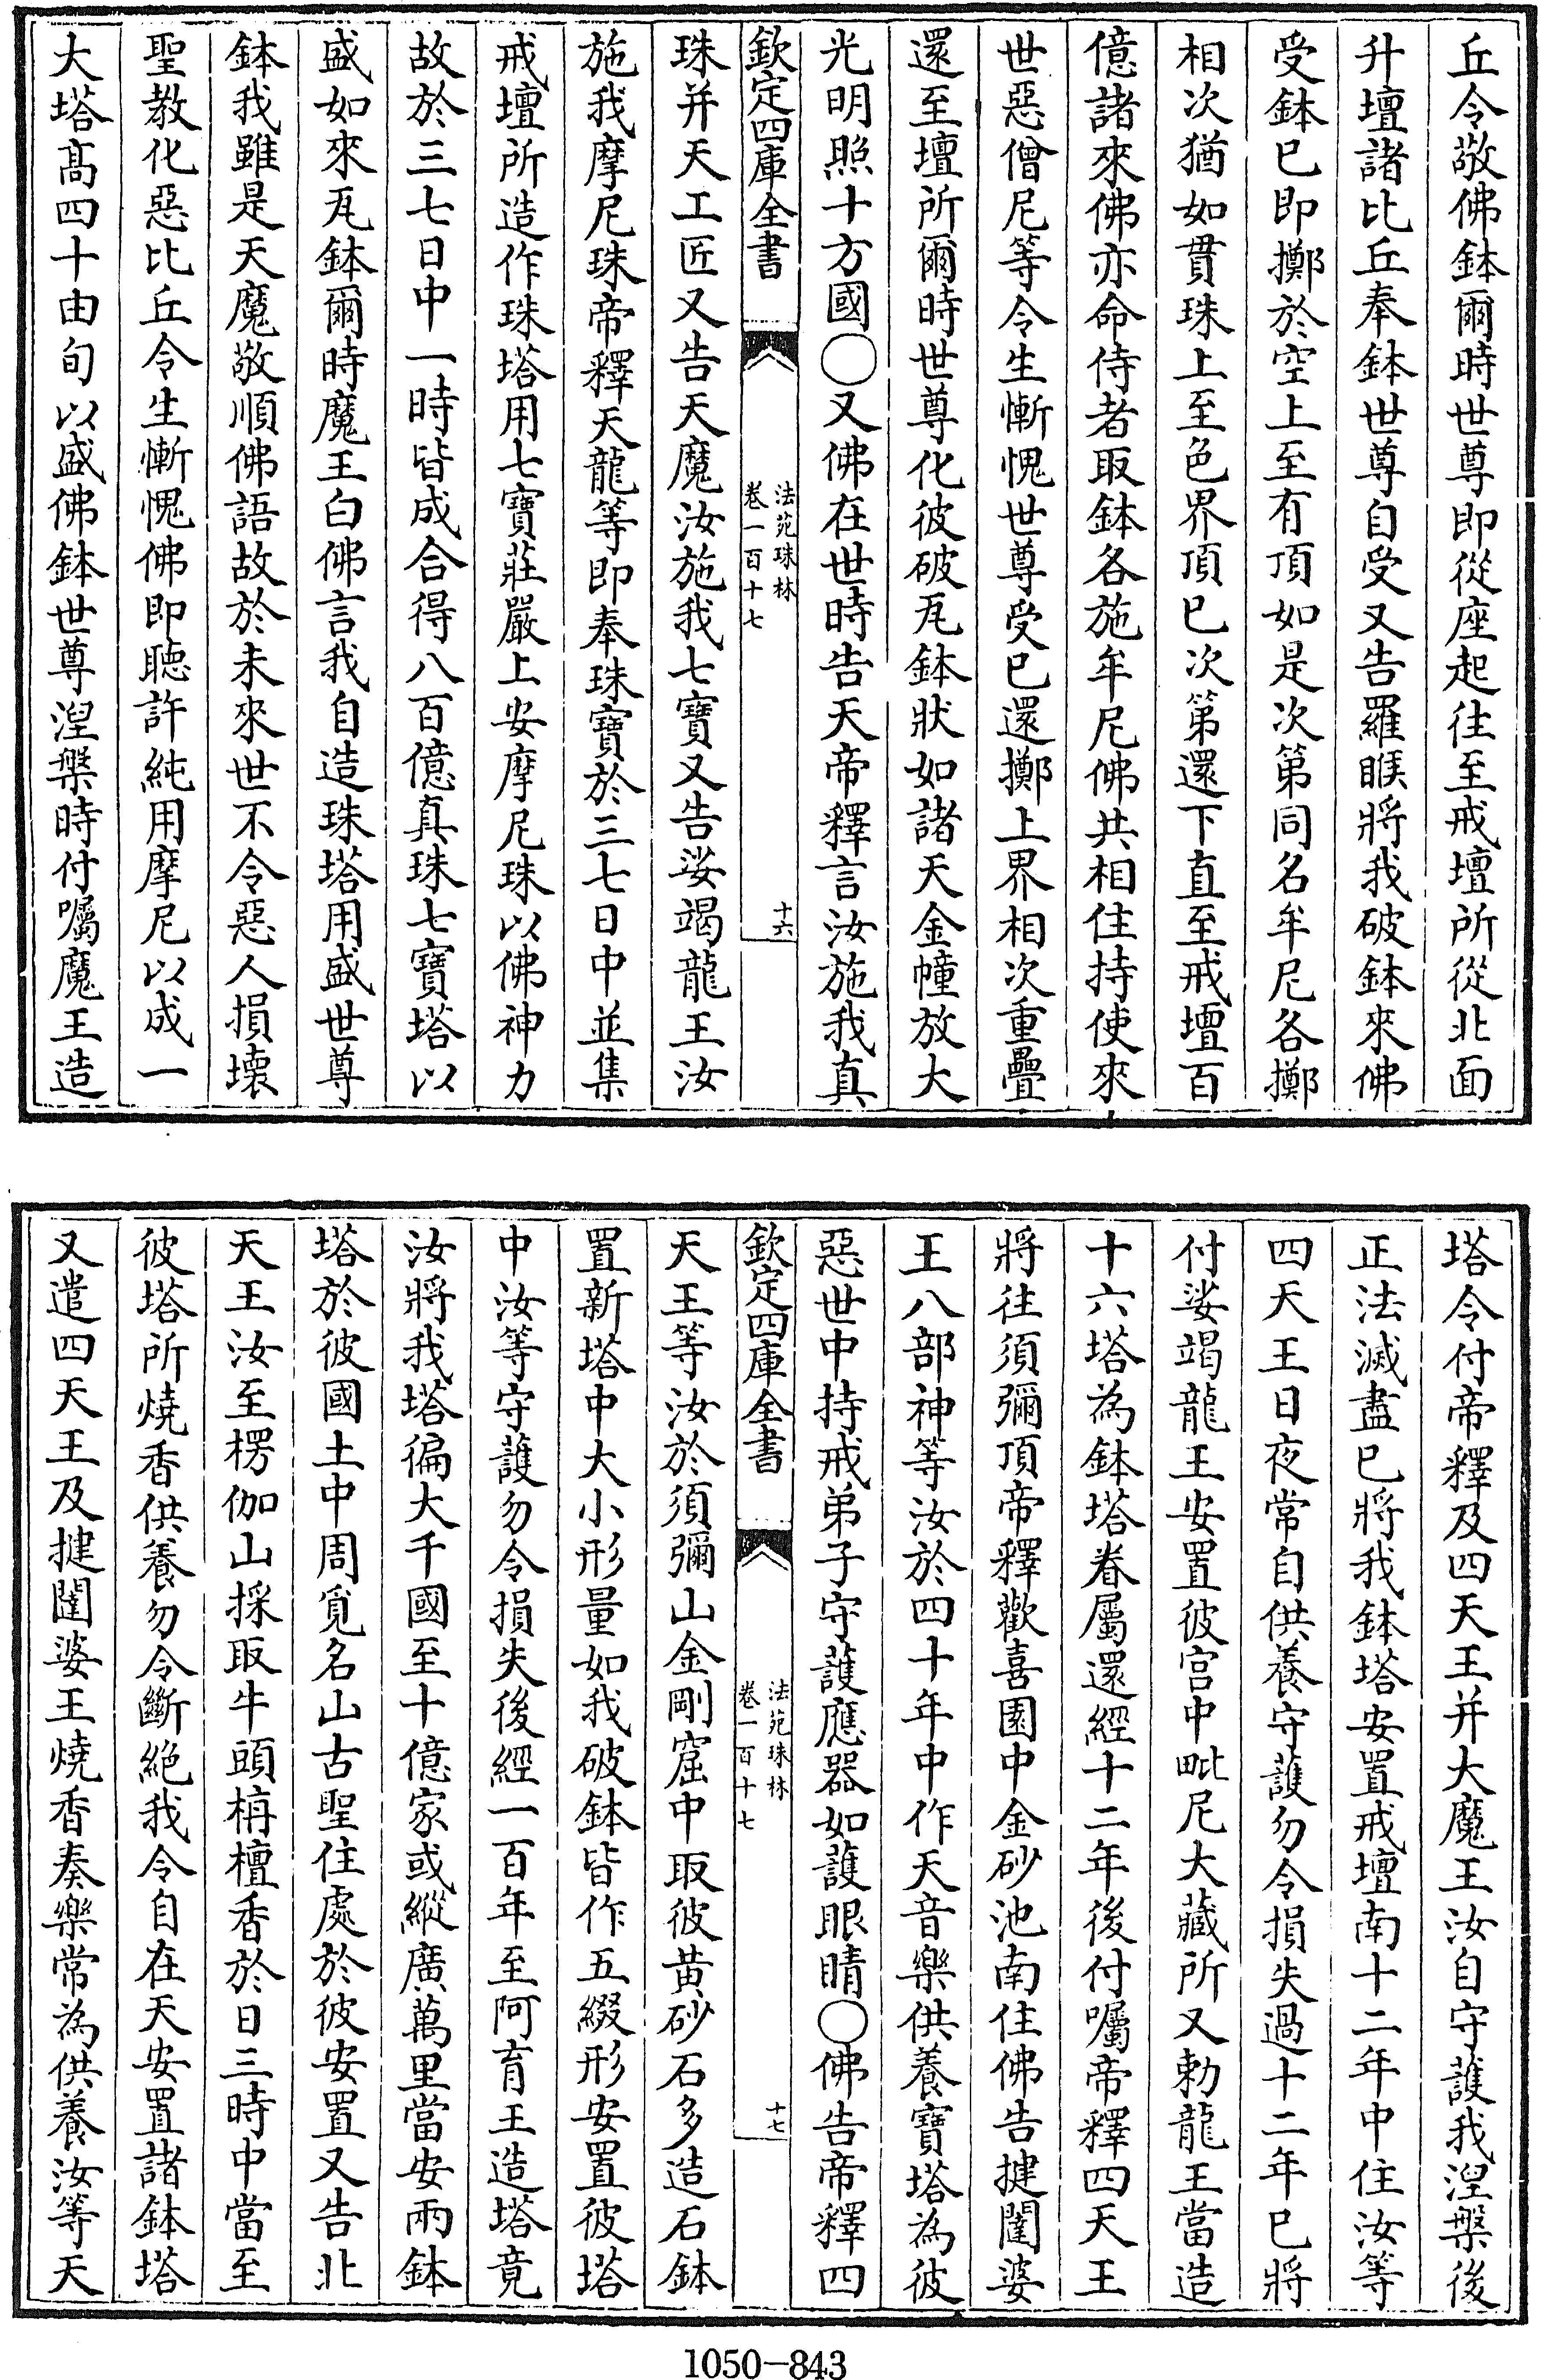 丘令敬佛鉢爾時世尊即從座起往至戒壇所從北面
升壇諸比丘奉鉢世尊自受又告羅睺將我破鉢來佛
受鉢已即擲於空上至有頂如是次第同名牟尼各擲
相次猶如貫珠上至色界頂已次第還下直至戒壇百
億諸來佛亦命侍者取鉢各施牟尼佛共相住持使來
世惡僧尼等令生慚愧世尊受已還擲上界相次重疊
還至壇所爾時世尊化彼破瓦鉢狀如諸天金幢放大
光明照十方國○又佛在世時告天帝釋言汝施我真
欽定四庫全書
法苑珠林
卷一百十七
十六
珠并天工匠又告天魔汝施我七寶又告娑竭龍王汝
施我摩尼珠帝釋天龍等即奉珠寶於三七日中並集
戒壇所造作珠塔用七寶莊嚴上安摩尼珠以佛神力
故於三七日中一時皆成合得八百億真珠七寶塔以
盛如來瓦鉢爾時魔王白佛言我自造珠塔用盛世尊
鉢我雖是天魔敬順佛語故於未來世不令惡人損壞
聖教化惡比丘令生慚愧佛即聽許純用摩尼以成一
大塔髙四十由旬以盛佛鉢世尊涅槃時付囑魔王造
塔令付帝釋及四天王并大魔王汝自守護我涅槃後
正法滅盡已將我鉢塔安置戒壇南十二年中住汝等
四天王日夜常自供養守護勿令損失過十二年已將
付娑竭龍王安置彼宫中毗尼大藏所又勅龍王當造
十六塔為鉢塔眷屬還經十二年後付囑帝釋四天王
將往須彌頂帝釋歡喜園中金砂池南住佛告揵闥婆
王八部神等汝於四十年中作天音樂供養寶塔為彼
惡世中持戒弟子守護應器如護眼睛○佛告帝釋四
欽定四庫全書
法苑珠林
卷一百十七
十七
天王等汝於須彌山金剛窟中取彼黄砂石多造石鉢
置新塔中大小形量如我破鉢皆作五綴形安置彼塔
中汝等守護勿令損失後經一百年至阿育王造塔竟
汝將我塔徧大千國至十億家或縱廣萬里當安兩鉢
塔於彼國土中周覓名山古聖住處於彼安置又告北
天王汝至楞伽山採取牛頭栴檀香於日三時中當至
彼塔所燒香供養勿令斷絶我令自在天安置諸鉢塔
又遣四天王及揵闥婆王燒香奏樂常為供養汝等天
1050-843